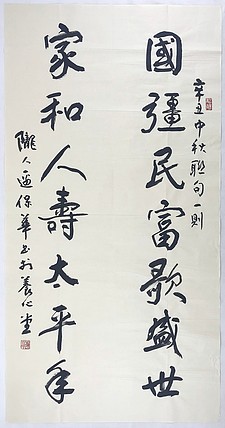 國疆民富歌盛世
辛丑中秋聯句一則
家和人壽太平年
隴人邊保華書於養心堂